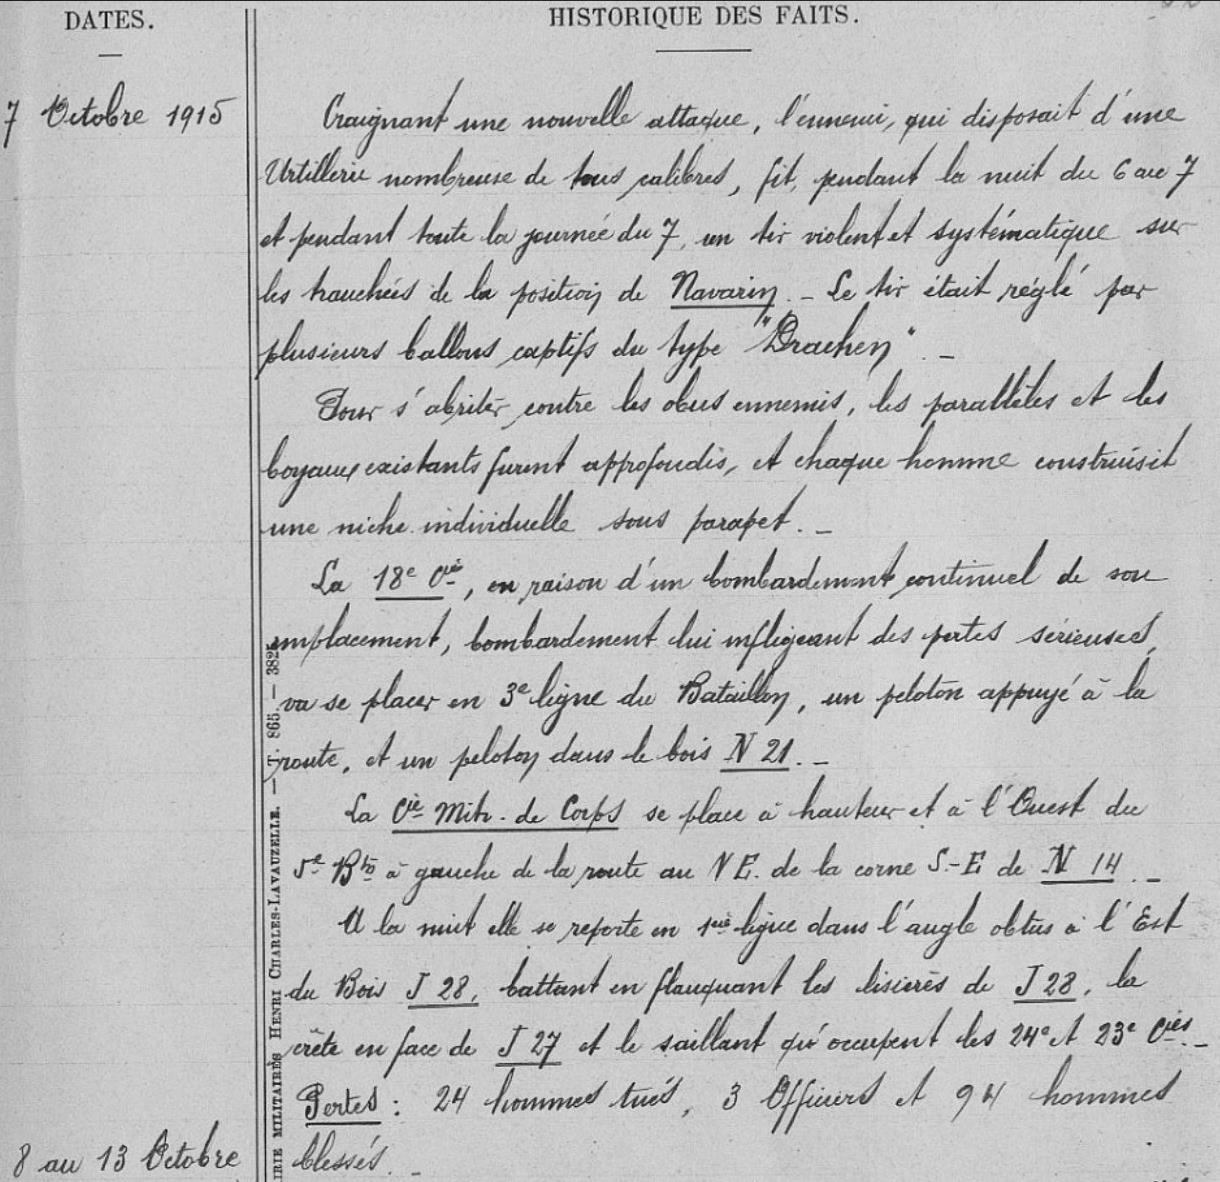 DATES.
HISTORIQUE DES FAITS.
7 Octobre 1915
Craignant une nouvelle attaque, l'ennemi, qui disposait d'une
Artillerie nombreuse de tous calibres, fit, pendant la nuit du 6 au 7
et pendant toute la journée du 7, un tir violent et systématique sur
les tranchées de la position de Navarin. - Le tir était réglé par
plusieurs ballons captifs du type "Drachen". -
Pour s'abriter contre les obus ennemis, les parallèles et les
boyaux existants furent approfondis, et chaque homme construisit
une niche individuelle sous parapet. -
La 18e Cie, en raison d'un bombardement continuel de son
emplacement, bombardement lui infligeant des pertes sérieuses,
va se placer en 3e ligne du Bataillon, un peloton appuyé à la
route, et un peloton dans le bois N 21. -
La Cie Mitr. de Corps se place à hauteur et à l'Ouest du
5e Bton à gauche de la route au NE. de la corne S.-E de N 14. -
A la nuit elle se reporte en 1ère ligne dans l'angle obtus à l'Est
du Bois J 28, battant en flanquant les lisières de J 28, la
crête en face de J 27 et le saillant qu'occupent les 24e et 23e Cies. -
Pertes : 24 hommes tués, 3 Officiers et 94 hommes
blessés. -
8 au 13 Octobre
IRIE MILITAIRES HENRI CHARLES-LAVAUZELLE. — T. 865 — 3825